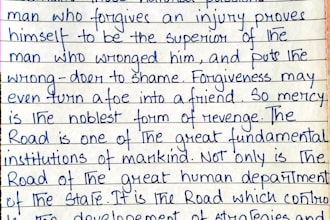 man who forgives an injury proves
himself to be the superior of the
man who wronged him, and puts the
wrong-doer to shame. Forgiveness may
even turn a foe into a friend. So mercy
is the noblest form of revenge. The
Road is one of the great fundamental
institutions of mankind. Not only is the
Road of the great human department
of the State. It is the Road which contro
the developement of strategies and